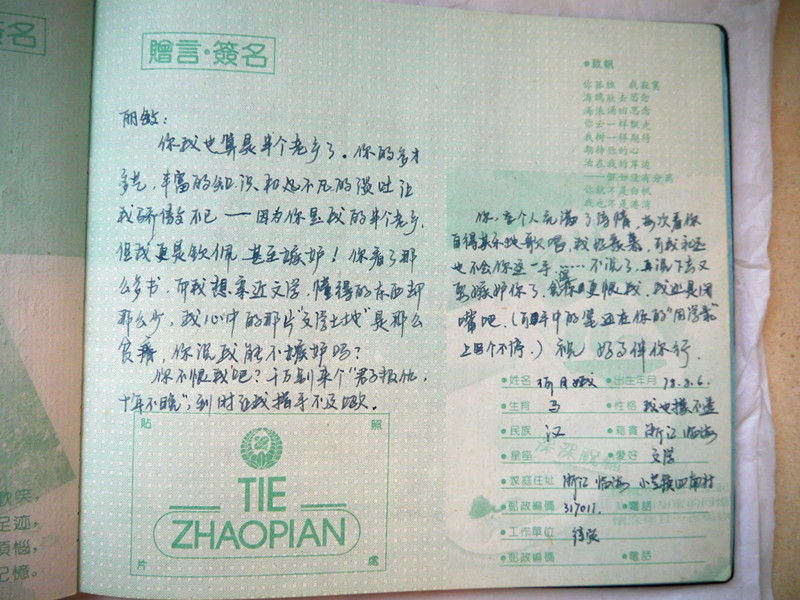 簽名
贈言·簽名
丽敏：
你我也算是半个老乡了。你的多才
多艺，丰富的知识和不凡的谈吐让
我骄傲不已——因为你是我的半个老乡，
但我更是钦佩甚至嫉妒！你看了那
么多书，而我想亲近文学，懂得的东西却
那么少，我心中的那片“文学土地”是那么
贫瘠，你说我能不嫉妒吗？
你不恨我吧？千万别来个“君子报仇，
十年不晚”，到时让我措手不及哦。
貼 照
TIE
ZHAOPIAN
片 處
●致帆
你孤独 我寂寞
海鸥放去思念
海浪涌回思念
你去一样飘光
我树一样期待
期待你的心
泊在我的岸边
——假如没有分离
你就不是白帆
我也不是港湾
你，整个人充满了诗情，每次看你
自得其乐地歌唱，我好羡慕，可我永远
也不会你这一手……不说了，再说下去又
要嫉妒你了，你更恨我，我还是闭
嘴吧。(可手中的笔还在你的“同学录”
上画个不停。) 祝 好了伴你行.
●姓名 月娥 ●出生年月 78.8.6.
●生肖 马 ●性格 我也搞不造
●民族 汉 ●籍貫 浙江临海
●星座 ●愛好 文学
●家庭住址 浙江临海小芝镇四南村
●郵政編碼 317011. ●電話
●工作單位 待张
●郵政編碼 ●電話
深深祝福
歡笑，
足迹，
煩惱，
記憶。